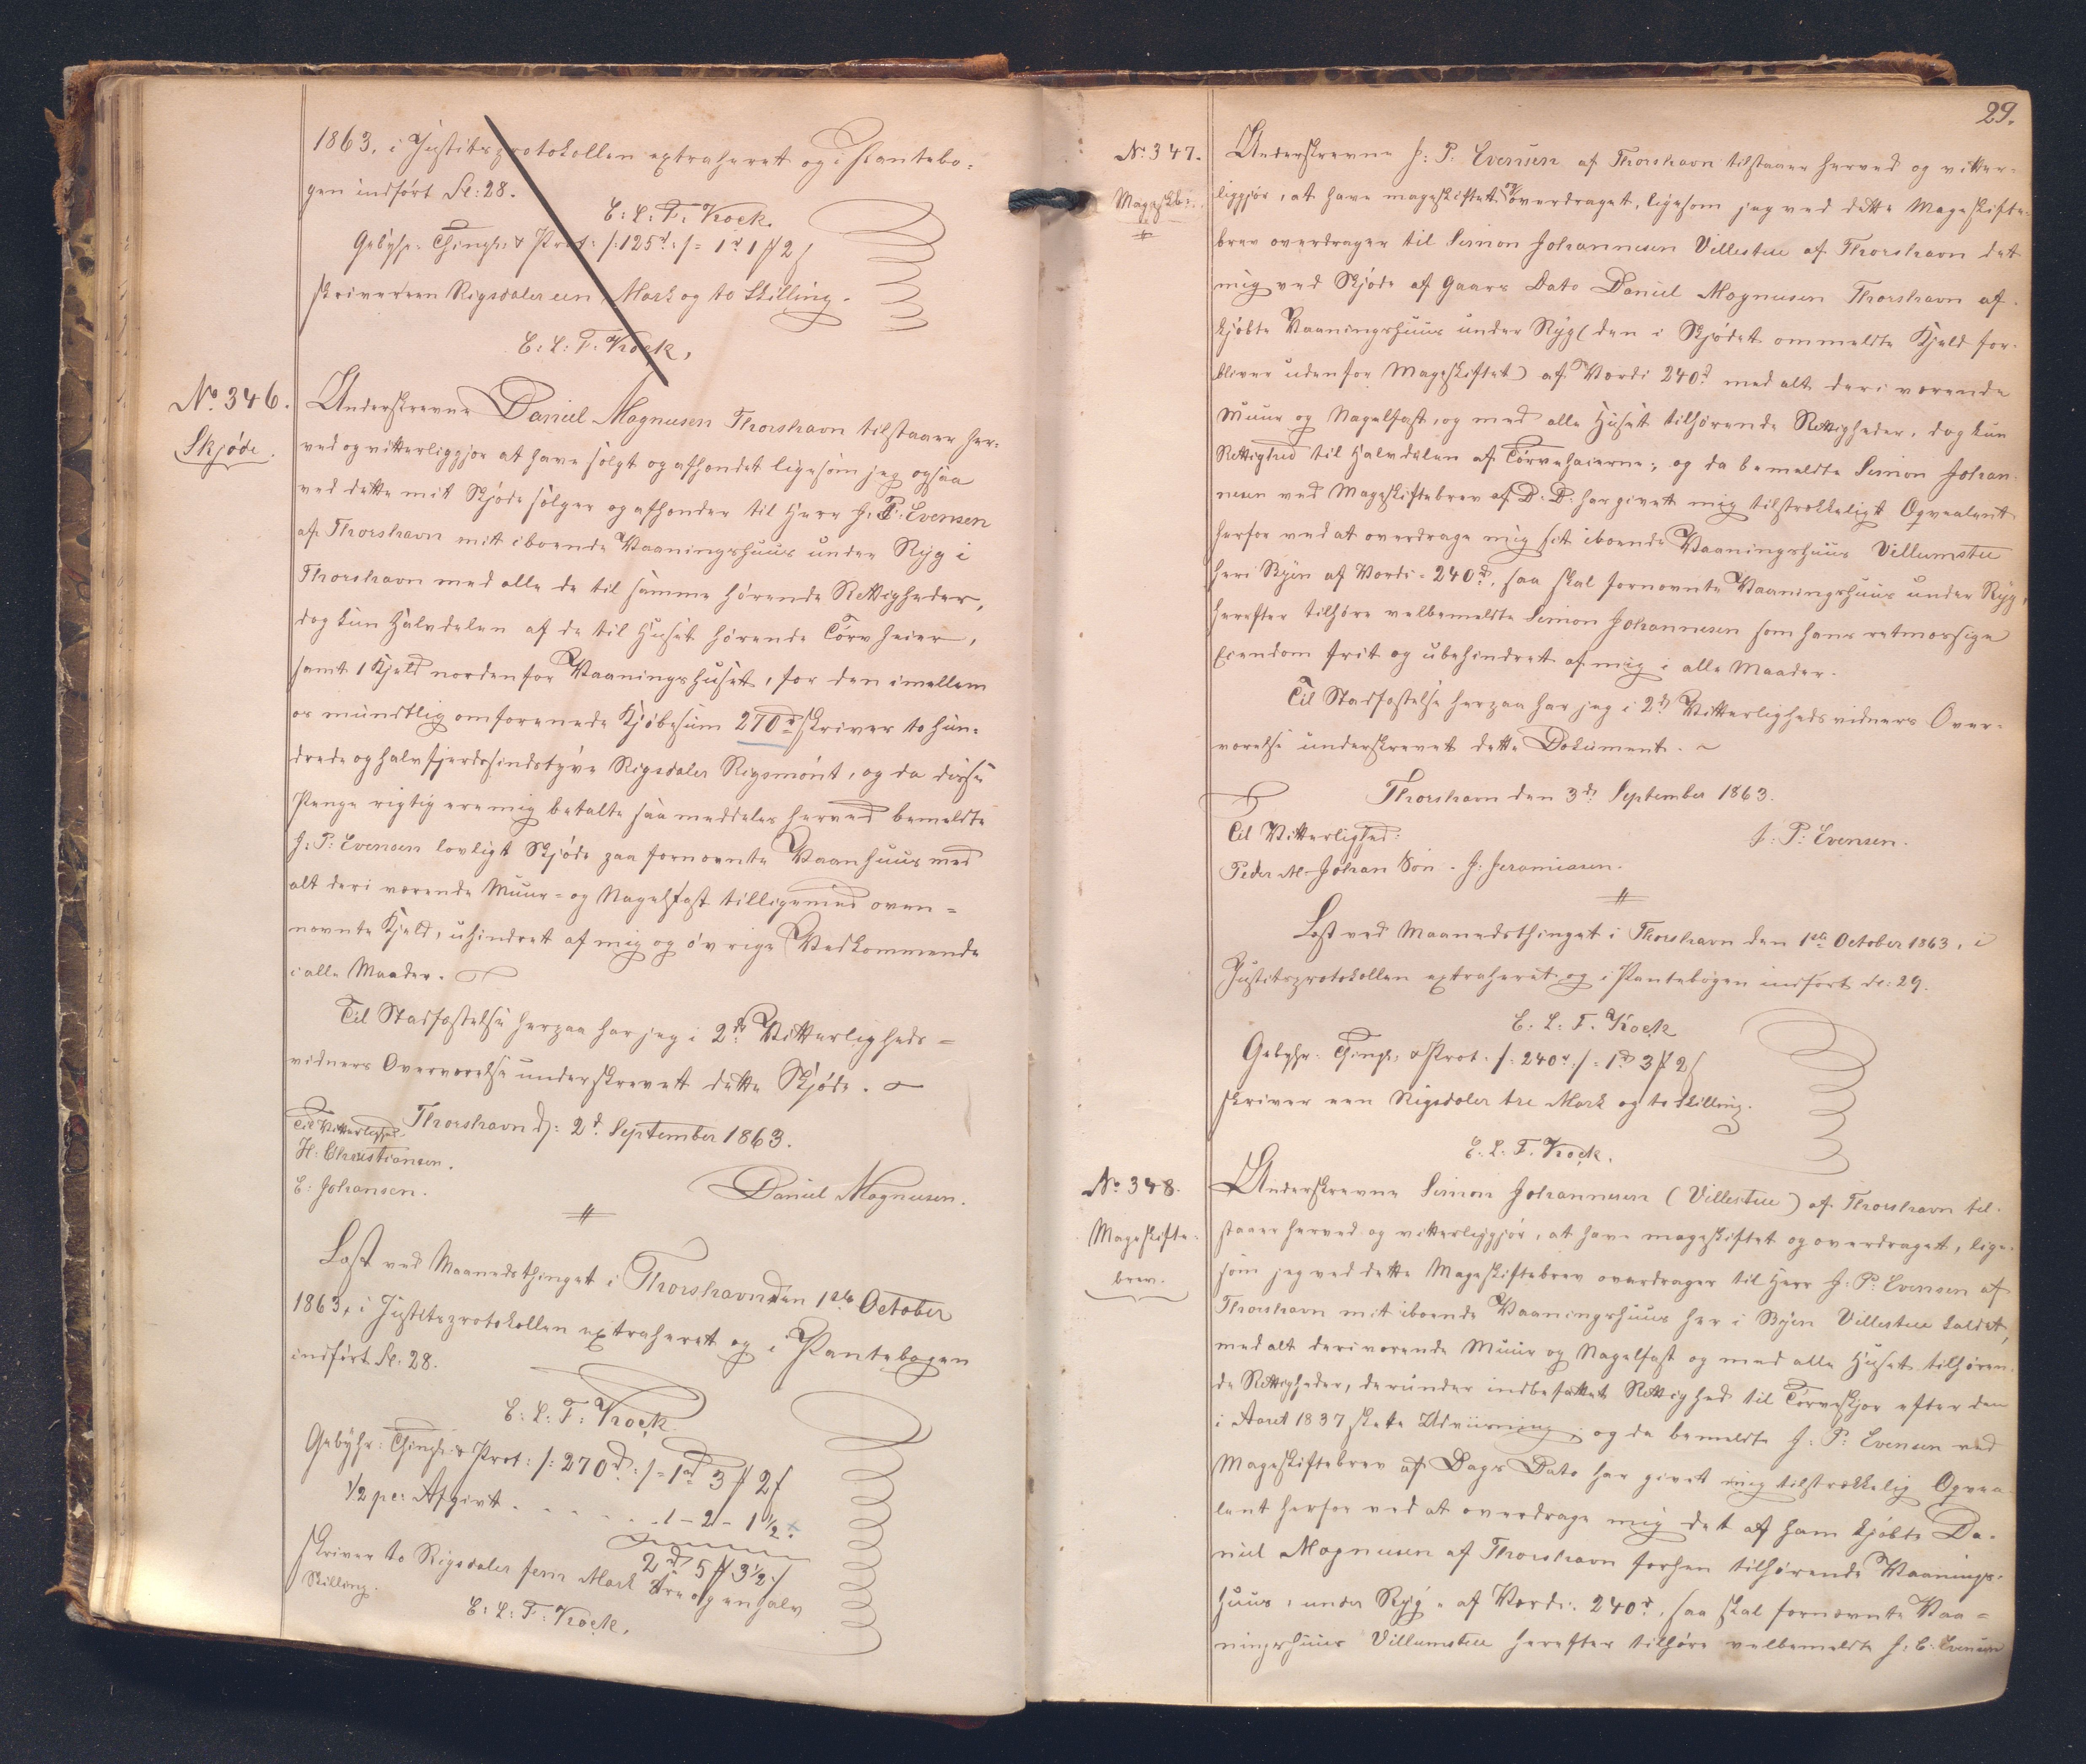 1863, i Justitsprotokollen extraheret og i Pantebo-
gen indført Fol: 28.
E: L: F: Krock.
Gebyhr: Thingl: & Prot: /: 125rd :/ = 1rd 1 # 2 s
skriver een Rigsdaler een Mark og to Skilling.
E: L: F: Krock,
No. 346.
Skjøde.
Underskrevne Daniel Magnusen Thorshavn tilstaaer her-
ved og vitterliggjør at have solgt og afhendet ligesom jeg ogsaa
ved dette mit Skjøde sælger og afhender til Herr J: P: Evensen
af Thorshavn mit iboende Vaaningshuus under Ryg i
Thorshavn med alle de til samme hørende Rettigheder,
dog kun Halvdelen af de til Huset hørende Tørvheier,
samt 1 Kjeld nordenfor Vaaningshuset, for den imellem
os mundtlig omforenede Kjøbesum 270rd skriver to hun-
drede og halvfjerdsindstyve Rigsdaler Rigsmønt, og da disse
Penge rigtig ere mig betalte saa meddeles herved bemeldte
J: P: Evensen lovligt Skjøde paa fornævnte Vaanhuus med
alt deri værende Muur- og Nagelfast tilligemed oven-
nævnte Kjeld, uhindret af mig og øvrige Vedkommende
i alle Maader.
Til Stadfæstelse herpaa har jeg i 2de Vitterligheds-
vidners Overværelse underskrevet dette Skjøde.
Thorshavn d: 2d September 1863.
Til Vitterlighed.
H: Christiansen.
E: Johansen.
Daniel Magnusen.
Læst ved Maanedsthinget i Thorshavn den 1ste October
1863, i Justitsprotokollen extraheret og i Pantebogen
indført Fol: 28.
E: L: F: Krock
Gebyhr: Thingl: & Prot: /: 270rd :/ = 1rd 3 # 2 s
1/2 pc: Afgivt . . . . . 1 - 2 - 1 1/2.
2rd 5 # 3 1/2 s
skriver to Rigsdaler fem Mark tre og en halv
Skilling.
E: L: F: Krock,
29.
No. 347.
Mageskb:
Underskrevne J: P: Evensen af Thorshavn tilstaaer herved og vitter-
liggjør, at have mageskiftet og overdraget, ligesom jeg ved dette Mageskifte-
brev overdrager til Simon Johannesen Villestue af Thorshavn det
mig ved Skjøde af Gaars Dato Daniel Magnusen Thorshavn af-
kjøbte Vaaningshuus under Ryg (den i Skjødet ommeldte Kjeld for-
bliver udenfor Mageskiftet) af Værdi 240rd med alt deri værende
Muur og Nagelfast, og med alle Huset tilhørende Rettigheder, dog kun
Rettighed til Halvdelen af Tørveheierne, og da bemeldte Simon Johan-
nesen ved Mageskiftebrev af D. D. har givet mig tilstrækkeligt Eqvealent
herfor ved at overdrage mig sit iboende Vaaningshuus Villumstue
her i Byen af Værdi = 240rd, saa skal fornævnte Vaaningshuus under Ryg,
herefter tilhøre velbemeldte Simon Johannesen som hans retmæssige
Eiendom frit og ubehindret af mig i alle Maader.
Til Stadfæstelse herpaa har jeg i 2de Vitterlighedsvidners Over-
værelse underskrevet dette Dokument.
Thorshavn den 3de September 1863.
Til Vitterlighed:
J: P: Evensen.
Peder M. Johan Søn. J: Jeramiasen.
Læst ved Maanedsthinget i Thorshavn den 1ste October 1863, i
Justitsprotokollen extraheret og i Pantebogen indført Fol: 29.
E: L: F: Krock
Gebyhr: Thingl: & Prot: /: 240rd :/ = 1rd 3 # 2 s
skriver een Rigsdaler tre Mark og to Skilling.
E: L: F: Krock.
No. 348.
Mageskifte-
brev.
Underskrevne Simon Johannesen (Villestue) af Thorshavn til-
staaer herved og vitterliggjør, at have mageskiftet og overdraget, lige-
som jeg ved dette Mageskiftebrev overdrager til Herr J: P: Evensen af
Thorshavn mit iboende Vaaningshuus her i Byen Villestue kaldet,
med alt deri værende Muur og Nagelfast og med alle Huset tilhøren-
de Rettigheder, derunder indbefattet Rettighed til Tørveskjær efter den
i Aaret 1837 skete Udviisning, og da bemeldte J: P: Evensen ved
Mageskiftebrev af Dags Dato har givet mig tilstrækkelig Eqvea-
lent herfor ved at overdrage mig det af ham kjøbte Da-
niel Magnusen af Thorshavn forhen tilhørende Vaanings-
huus, under Ryg, af Værdi: 240rd, saa skal fornævnte Vaa-
ningshuus Villumstue herefter tilhøre velbemeldte J: E: Evensen